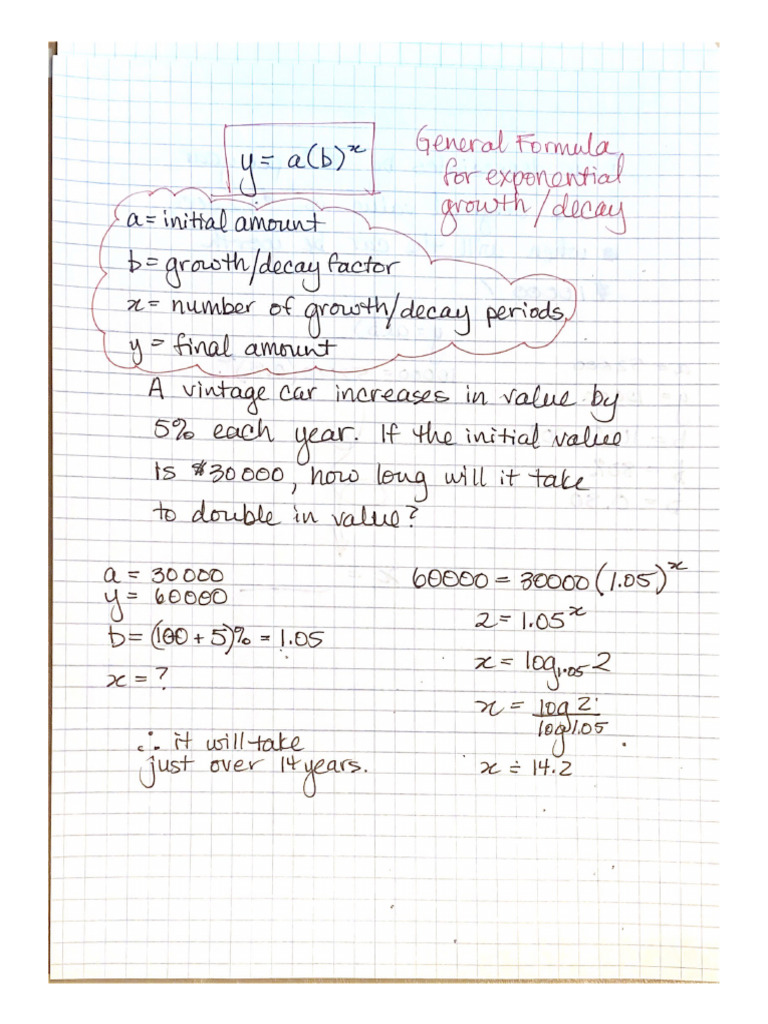 y = a(b)ˣ
General Formula
for exponential
growth/decay
a = initial amount
b = growth/decay factor
x = number of growth/decay periods
y = final amount
A vintage car increases in value by
5% each year. If the initial value
is $30000, how long will it take
to double in value?
a = 30000
y = 60000
b = (100 + 5)% = 1.05
x = ?
∴ it will take
just over 14 years.
60000 = 30000(1.05)ˣ
2 = 1.05ˣ
x = log₁.₀₅ 2
x = log 2
log 1.05
x ≐ 14.2